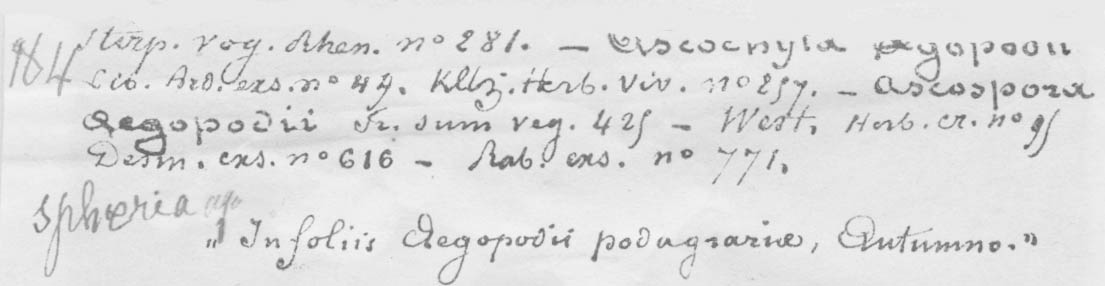 984
Stirp. vog. Rhen. nº 281. — Ascochyta Aegopodii
Lib. Ard. exs. nº 49. Kltz. Herb. viv. nº 257. — Ascospora
Aegopodii Fr. sum veg. 425 — West. Herb. cr. nº 95
Desm. exs. nº 616 — Rab. exs. nº 771.
Sphæria
„ In foliis Aegopodii podagrariæ, Autumno."